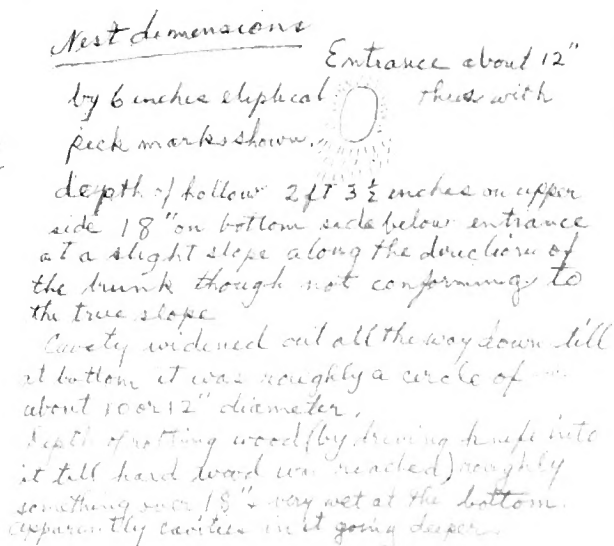 Nest dimensions
Entrance about 12"
by 6 inches eliptical thus with
peck marks shown.
depth of hollow 2 ft 3 ½ inches on upper
side 18" on bottom side below entrance
at a slight slope along the direction of
the trunk though not conforming to
the true slope
Cavity widened out all the way down till
at bottom it was roughly a circle of
about 10 or 12" diameter.
Depth of rotting wood (by driving knife into
it till hard wood was reached) roughly
something over 18" & very wet at the bottom.
apparently cavities in it going deeper.